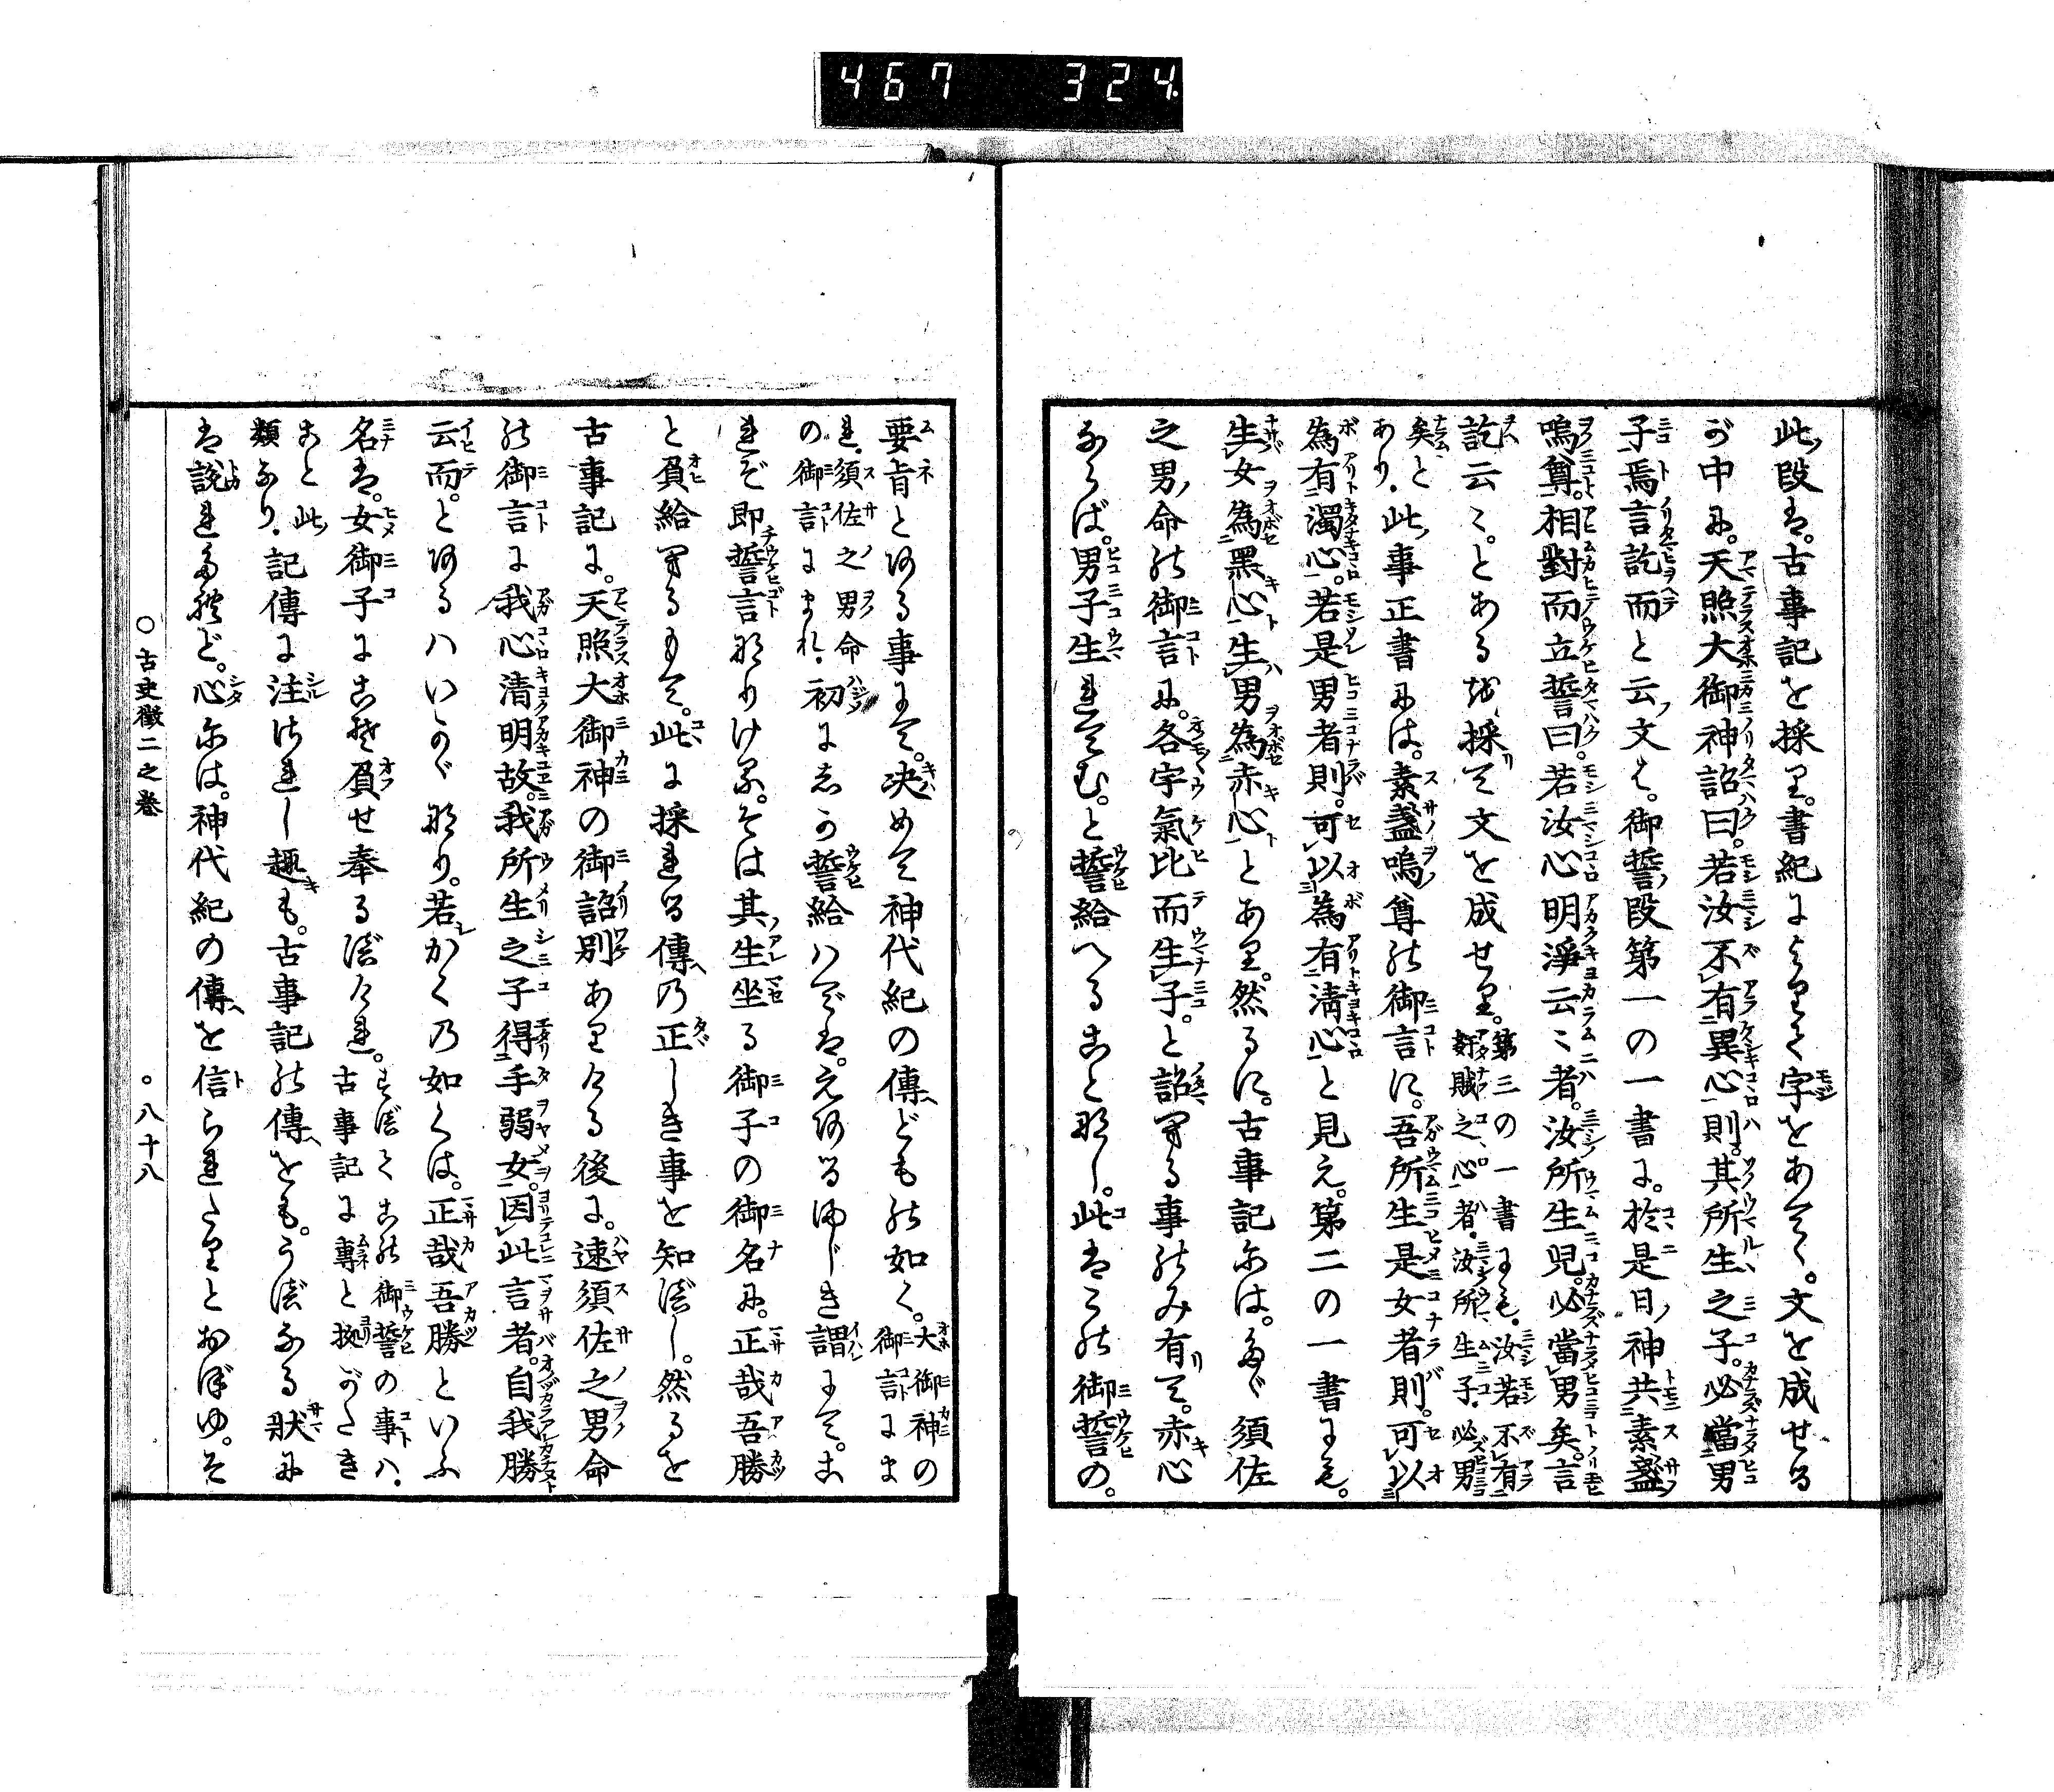 467 324
此段は。古事記を採り。書紀によりて字をあてて。文を成せる
が中に。天照大御神詔曰。若汝不有異心則。其所生之子。必當男
子焉言訖而と云文は。御誓ノ段第一の一書に。於是日ノ神共素盞
嗚尊。相對而立誓曰。若汝心明淨云〻者。汝所生兒。必當男矣。言
訖云〻。とある を採て文を成せり。第三の一書にも。汝若不有
姧賊之心者。汝所生子。必男
矣と
あり。此事正書には。素盞嗚尊の御言に。吾所生是女者則。可以
為有濁心。若是男者則。可以為有清心と見え。第二の一書にも。
生女為黒心。生男為赤心とあり。然るに。古事記には。たゞ須佐
之男ノ命の御言に。各宇氣比而生子。と詔へる事のみ有て。赤心
ならば。男子生れてむ。と誓給へること無し。此はこの御誓の。
要旨とある事にて。决めて神代紀の傳どもの如く。大御神の
御言にま
れ。須佐之男命
の御言にまれ。初にしか誓給はでは。えあるまじき謂にて。こ
れぞ即誓言なりける。そは其ノ生坐る御子の御名に。正哉吾勝
と負給へるもて。此に採れる傳の正しき事を知べし。然るを
古事記に。天照大御神の御詔別ありける後に。速須佐之男命
の御言に我心清明故。我所生之子得手弱女。因此言者。自我勝
云而。とあるハいかゞなり。若かくの如くは。正哉吾勝といふ
名は。女御子にこそ負せ奉るべけれ。すべてこの御誓の事ハ。
古事記に專と拠がたき
こと此
類なり。記傳に注はれし趣も。古事記の傳をも。うべなる狀に
は説れたれど。心には。神代紀の傳を信られたりとおぼゆ。そ
〇古史徴二之巻 。八十八